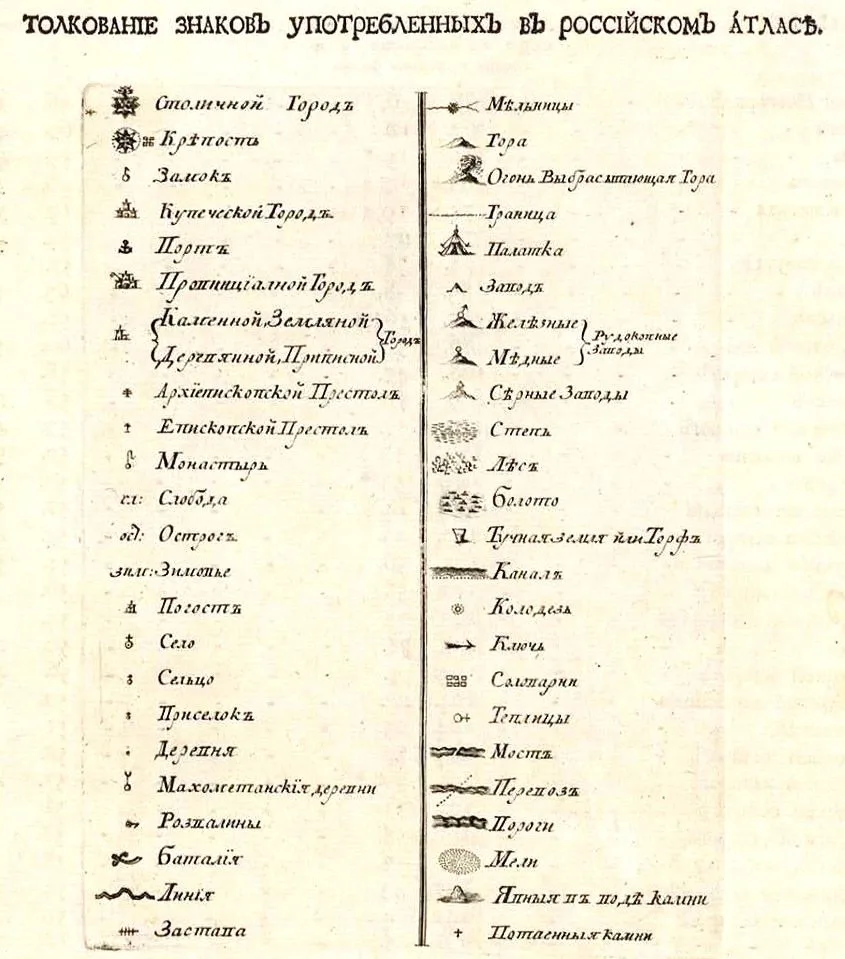 ТОЛКОВАНІЕ ЗНАКОВЪ УПОТРЕБЛЕННЫХЪ ВЪ РОССІЙСКОМЪ А́ТЛАСѢ.
Столичной Городъ
Крѣпость
Замокъ
Купеческой Городъ.
Портъ
Провинціалной Городъ
Каменной, Земляной
Деревянной, Приписной
Городъ
Архіепископской Престолъ
Епископской Престолъ
Монастырь
сл: Слобода
ост: Острогъ
зим: Зимовье
Погостъ
Село
Сельцо
Приселокъ
Деревня
Махометанскія деревни
Розвалины
Баталія
Линія
Застава
Мѣльницы
Гора
Огонь Выбрасывающая Гора
Граница
Палатка
Заводъ
Желѣзные
Мѣдные
Рудокопные
Заводы
Сѣрные Заводы
Степь
Лѣсъ
Болото
Тучная земля или Торфъ
Каналъ
Колодезь
Ключь
Солварни
Теплицы
Мостъ
Перевозъ
Пороги
Мели
Явныя въ водѣ камни
Потаенныя камни